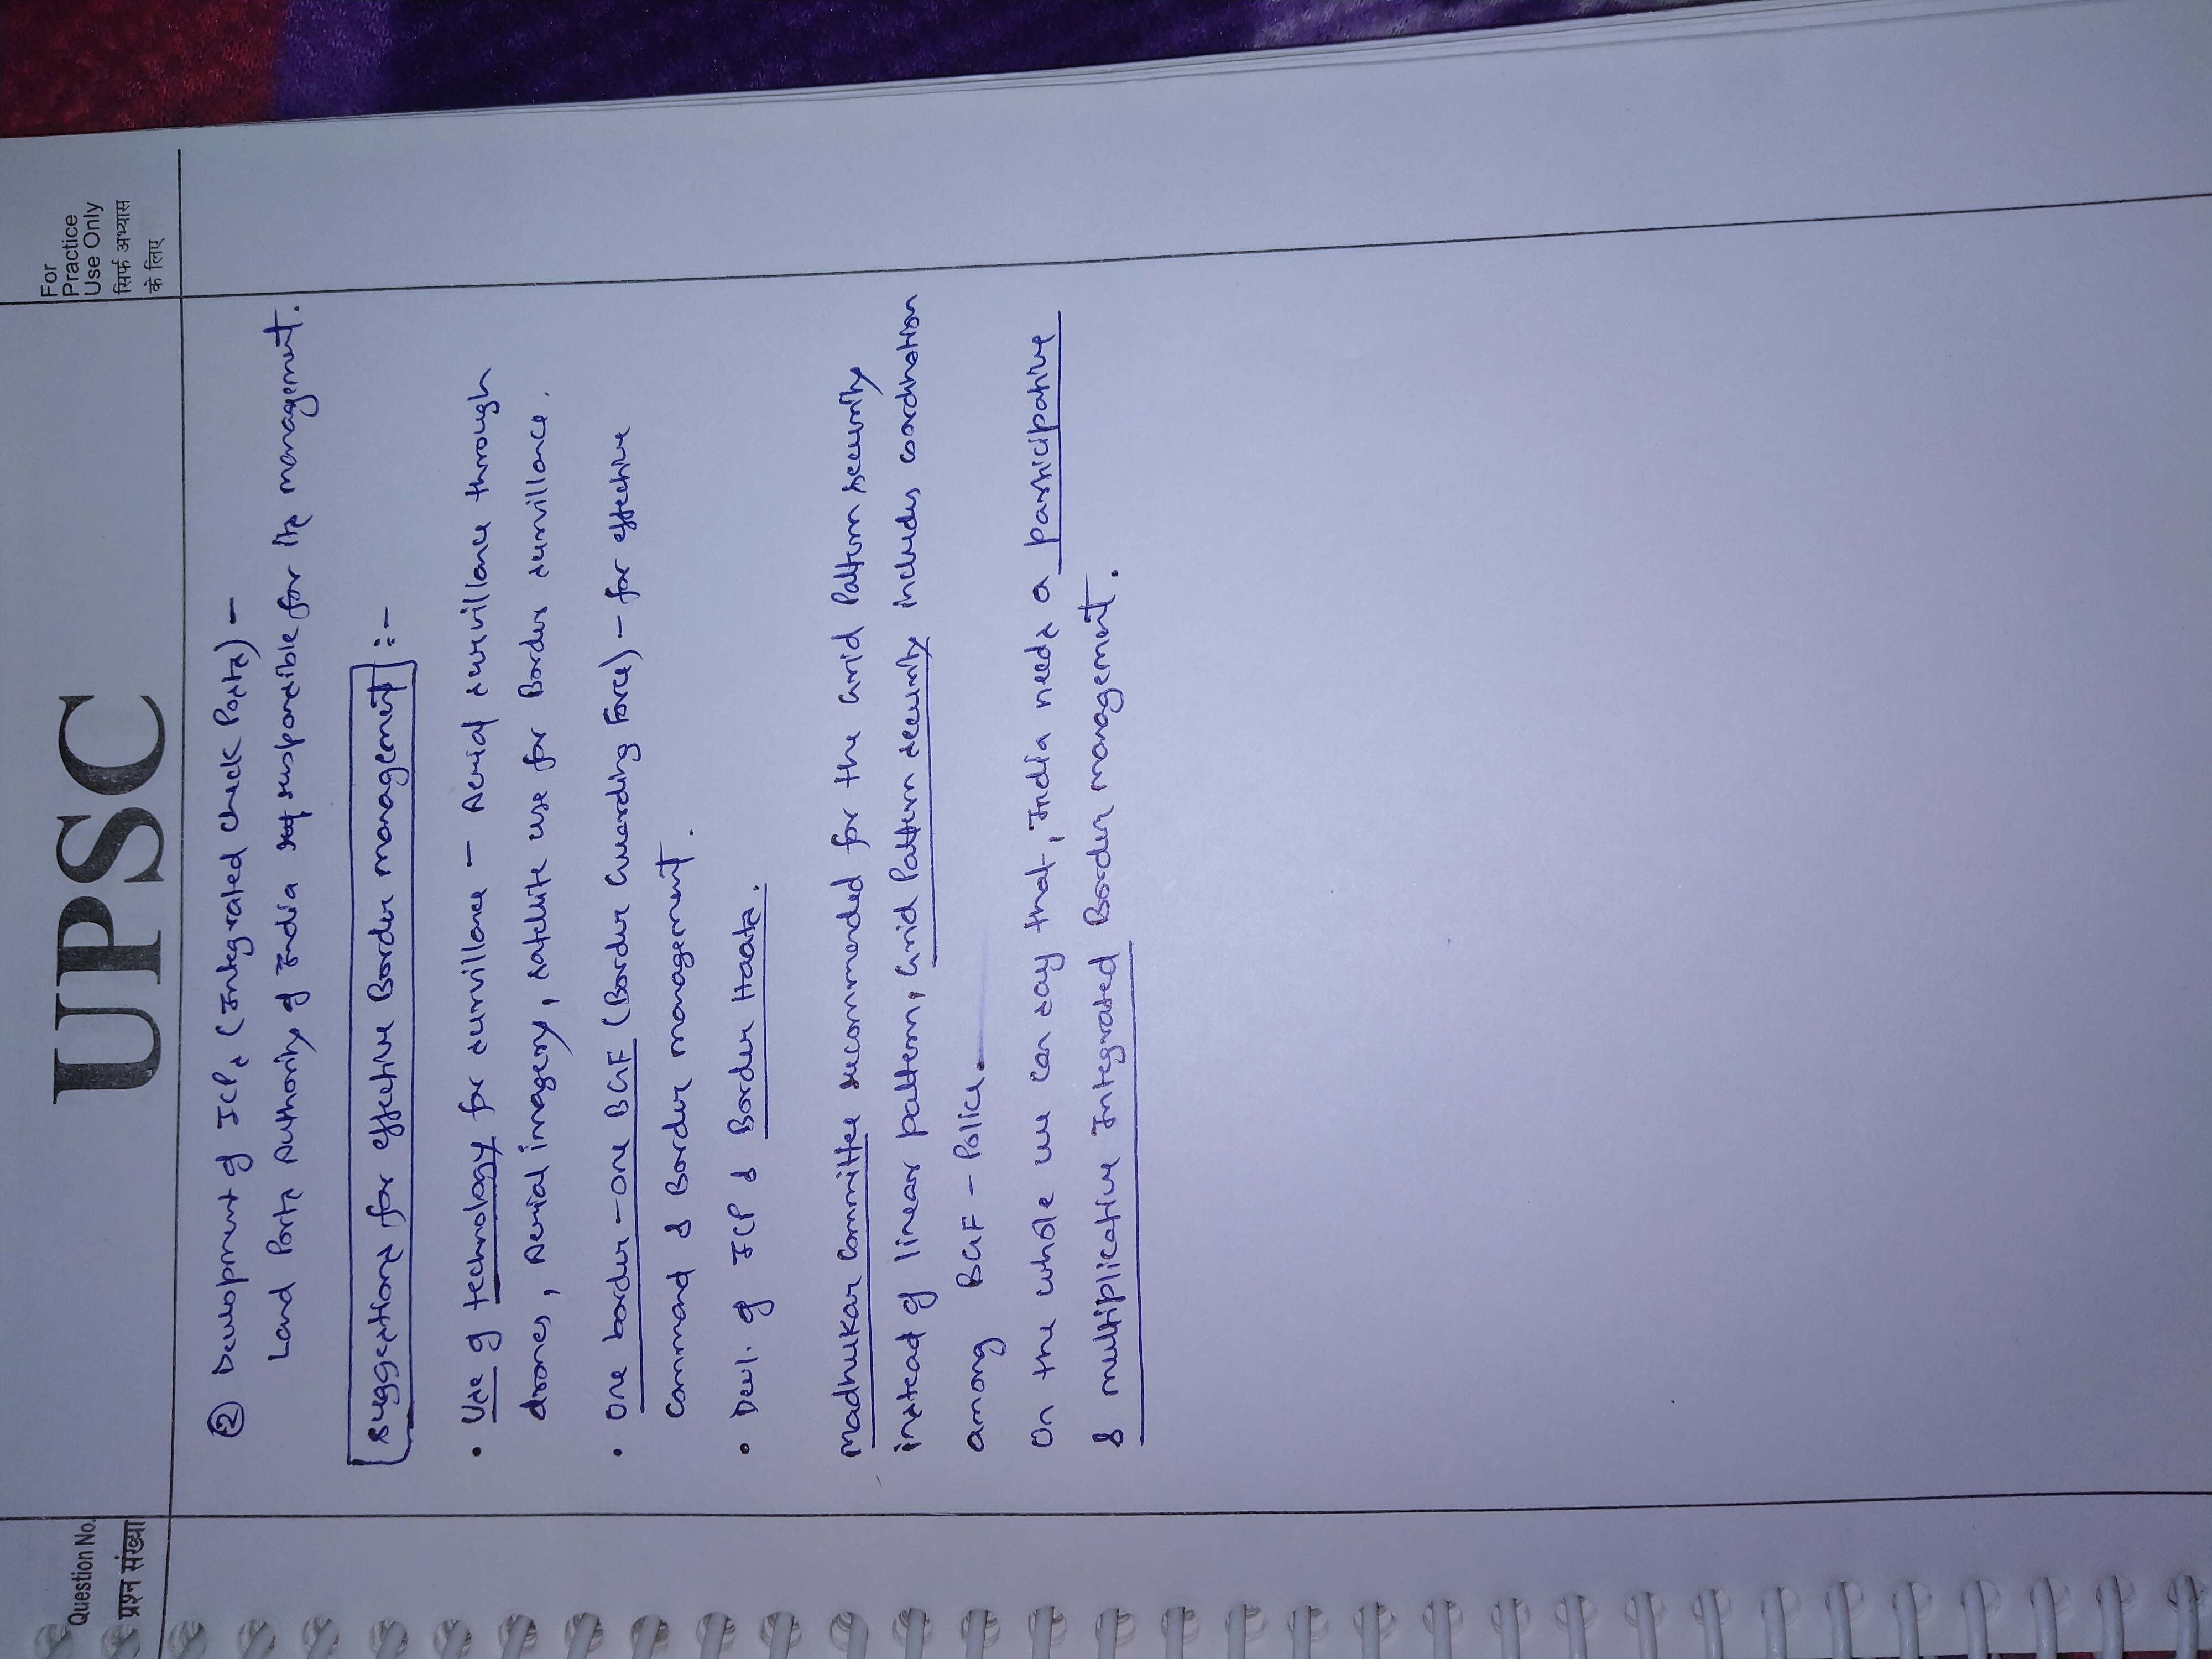 Question No.
प्रश्न संख्या
UPSC
For
Practice
Use Only
सिर्फ अभ्यास
के लिए
② Development of ICPs (Integrated Check Posts) –
Land Ports Authority of India responsible for its management.
Suggestions for effective Border management :–
• Use of technology for survillance – Aerial survillance through
drones, Aerial imagery, satellite use for Border survillance.
• One border – One BGF (Border Guarding Force) – for effective
Command & Border management.
• Devl. of ICP & Border Haats.
Madhukar Committee recommended for the Grid Pattern security
instead of linear pattern, Grid Pattern security includes coordination
among BGF – Police.
On the whole we can say that, India needs a participative
& multiplicative Integrated Border management.